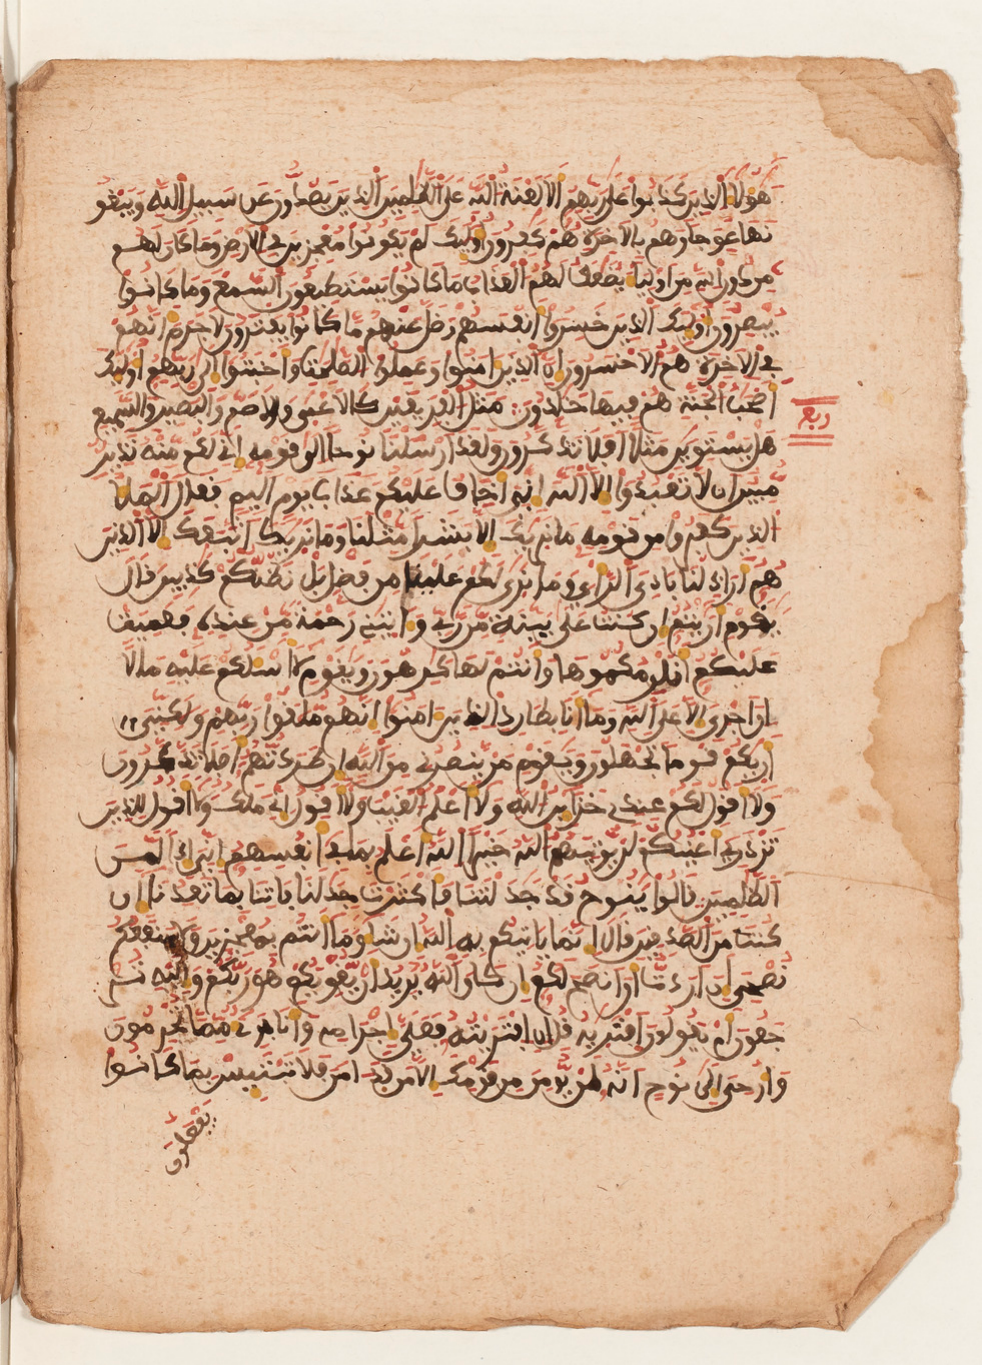 هؤلاء الذين كذبوا على ربهم الا لعنة الله على الظلمين الذين يصدون عن سبيل الله ويبغو
نها عوجا وهم بالاخرة هم كفرون اوليك لم يكونوا معجزين في الارض وما كان لهم
من دون الله من اولياء يضعف لهم العذاب ما كانوا يستطيعون السمع وما كانوا
يبصرون اوليك الذين خسروا انفسهم وضل عنهم ما كانوا يفترون لا جرم انهم
في الاخرة هم الاخسرون ان الذين امنوا وعملوا الصلحت واخبتوا الى ربهم اوليك
اصحب الجنة هم فيها خلدون مثل الفريقين كالاعمى والاصم والبصير والسميع
ربع
هل يستوين مثلا افلا تذكرون ولقد ارسلنا نوحا الى قومه اني لكم منه نذير
مبين ان لا تعبدوا الا الله اني اخاف عليكم عذاب يوم اليم فقال الملا
الذين كفروا من قومه ما نريك الا بشرا مثلنا وما نريك اتبعك الا الذين
هم اراذلنا بادي الراي وما نرى لكم علينا من فضل بل نظنكم كذبين قال
يقوم اريتم ان كنت على بينة من ربي واتيني رحمة من عنده فعميت
عليكم انلزمكموها وانتم لها كرهون ويقوم لا اسلكم عليه مالا
ان اجري الا على الله وما انا بطارد الذين امنوا انهم ملقوا ربهم ولكني
اريكم قوما تجهلون ويقوم من ينصرني من الله ان طردتهم افلا تذكرون
ولا اقول لكم عندي خزاين الله ولا اعلم الغيب ولا اقول اني ملك ولا اقول للذين
تزدري اعينكم لن يوتيهم الله خيرا الله اعلم بما في انفسهم اني اذا لمن
الظلمين قالوا ينوح قد جدلتنا فاكثرت جدلنا فاتنا بما تعدنا ان
كنت من الصدقين قال انما ياتيكم به الله ان شاء وما انتم بمعجزين ولا ينفعكم
نصحي ان اردت ان انصح لكم ان كان الله يريد ان يغويكم هو ربكم واليه تر
جعون ام يقولون افتريه قل ان افتريته فعلي اجرامي وانا بريء مما تجرمون
واوحي الى نوح انه لن يومن من قومك الا من قد امن فلا تبتيس بما كانوا
يفعلون